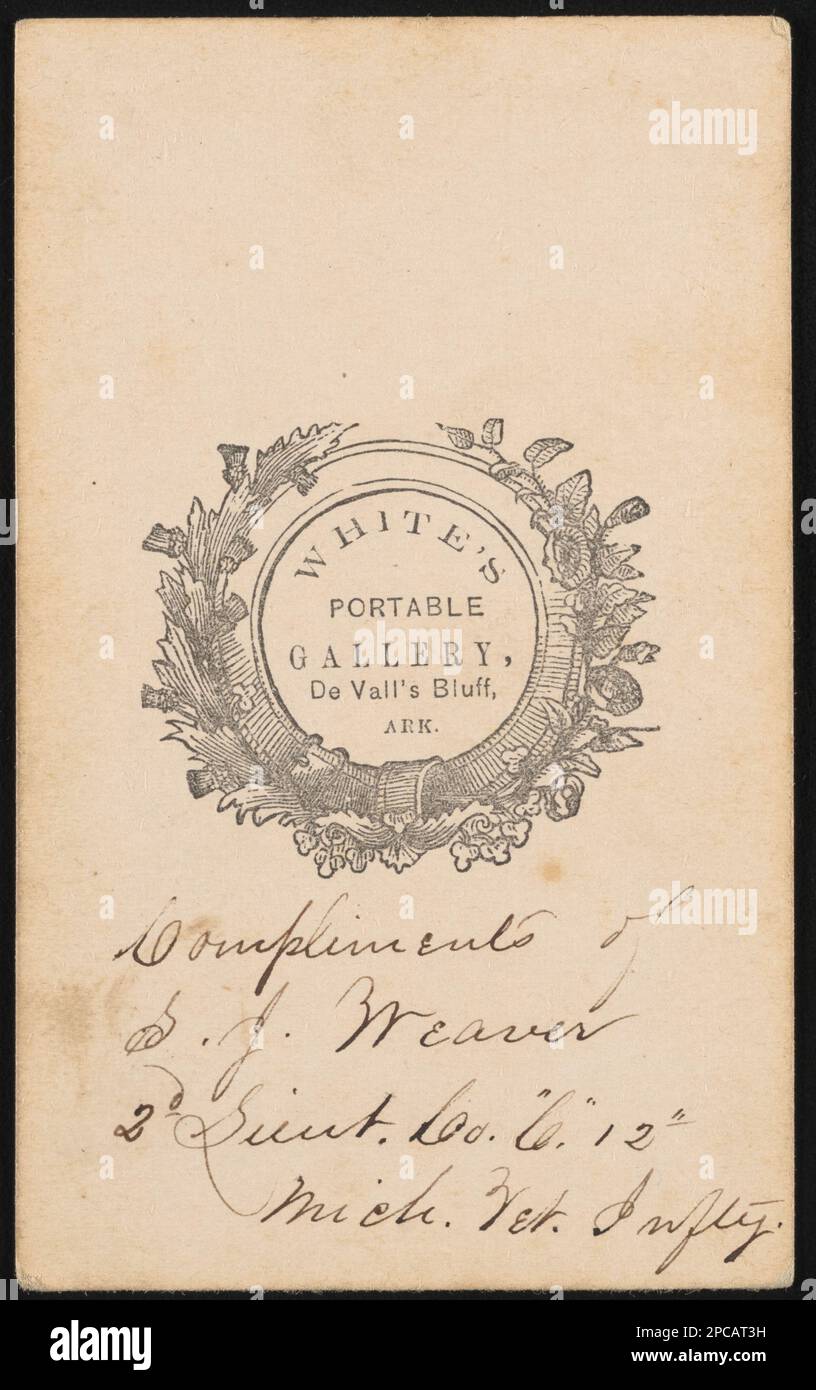 WHITE'S
PORTABLE
GALLERY,
De Vall's Bluff,
ARK.
Compliments of
S. J. Weaver
2d Lieut. Co. "C." 12"
Mich. Vet. Infty.
alamy
alamy
Image ID: 2PCAT3H
www.alamy.com